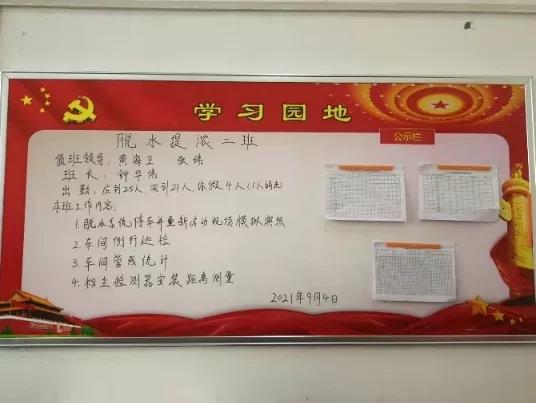 学习园地
公示栏
脱水提浓二班
值班领导：黄海卫 张伟
班长：钟华伟
出勤：应到25人，实到21人，休假4人
本班工作内容：
1.脱水系统停车并重新启动现场模拟演练
2.车间例行巡检
3.车间管线统计
4.粉尘检测器安装距离测量
2021年9月4日